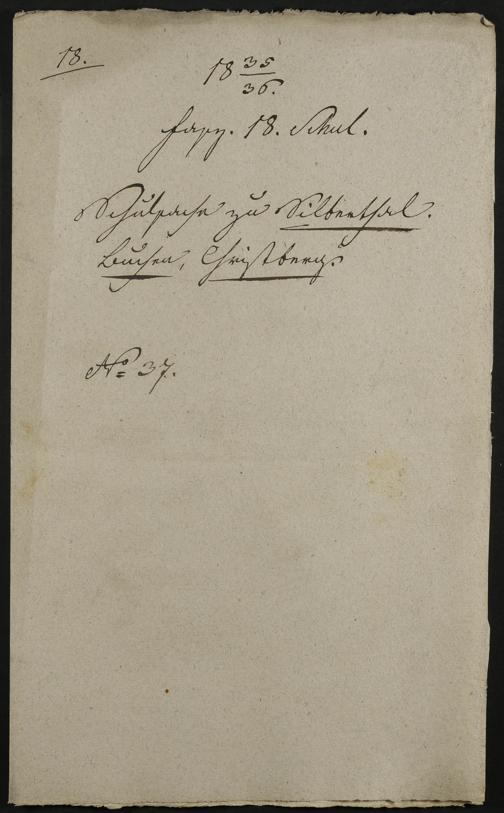 18.
18 35/36.
Fasz. 18. Schul.
Schulsache zu Silberthal.
Buchen, Christberg.
No 37.